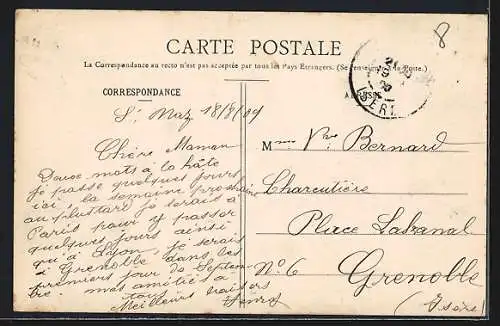 8
CARTE POSTALE
La Correspondance au recto n'est pas acceptée par tous les Pays Etrangers. (Se renseigner à la Poste.)
CORRESPONDANCE
ISÈRE
St Naz 18/8/09
Chère Maman
Deux mots à la hâte
je passe quelques jours
ici, la semaine prochaine
au plus tard je serais à
Paris pour y passer
quelques jours ainsi
qu'à Lyon, je serais
à Grenoble dans les
premiers jour de Septem-
bre. mes amitiés à
tous
Meilleurs baisers
Henri
Mme Vve Bernard
Charcutière
Place Labanal
No 6
Grenoble
(Isère)